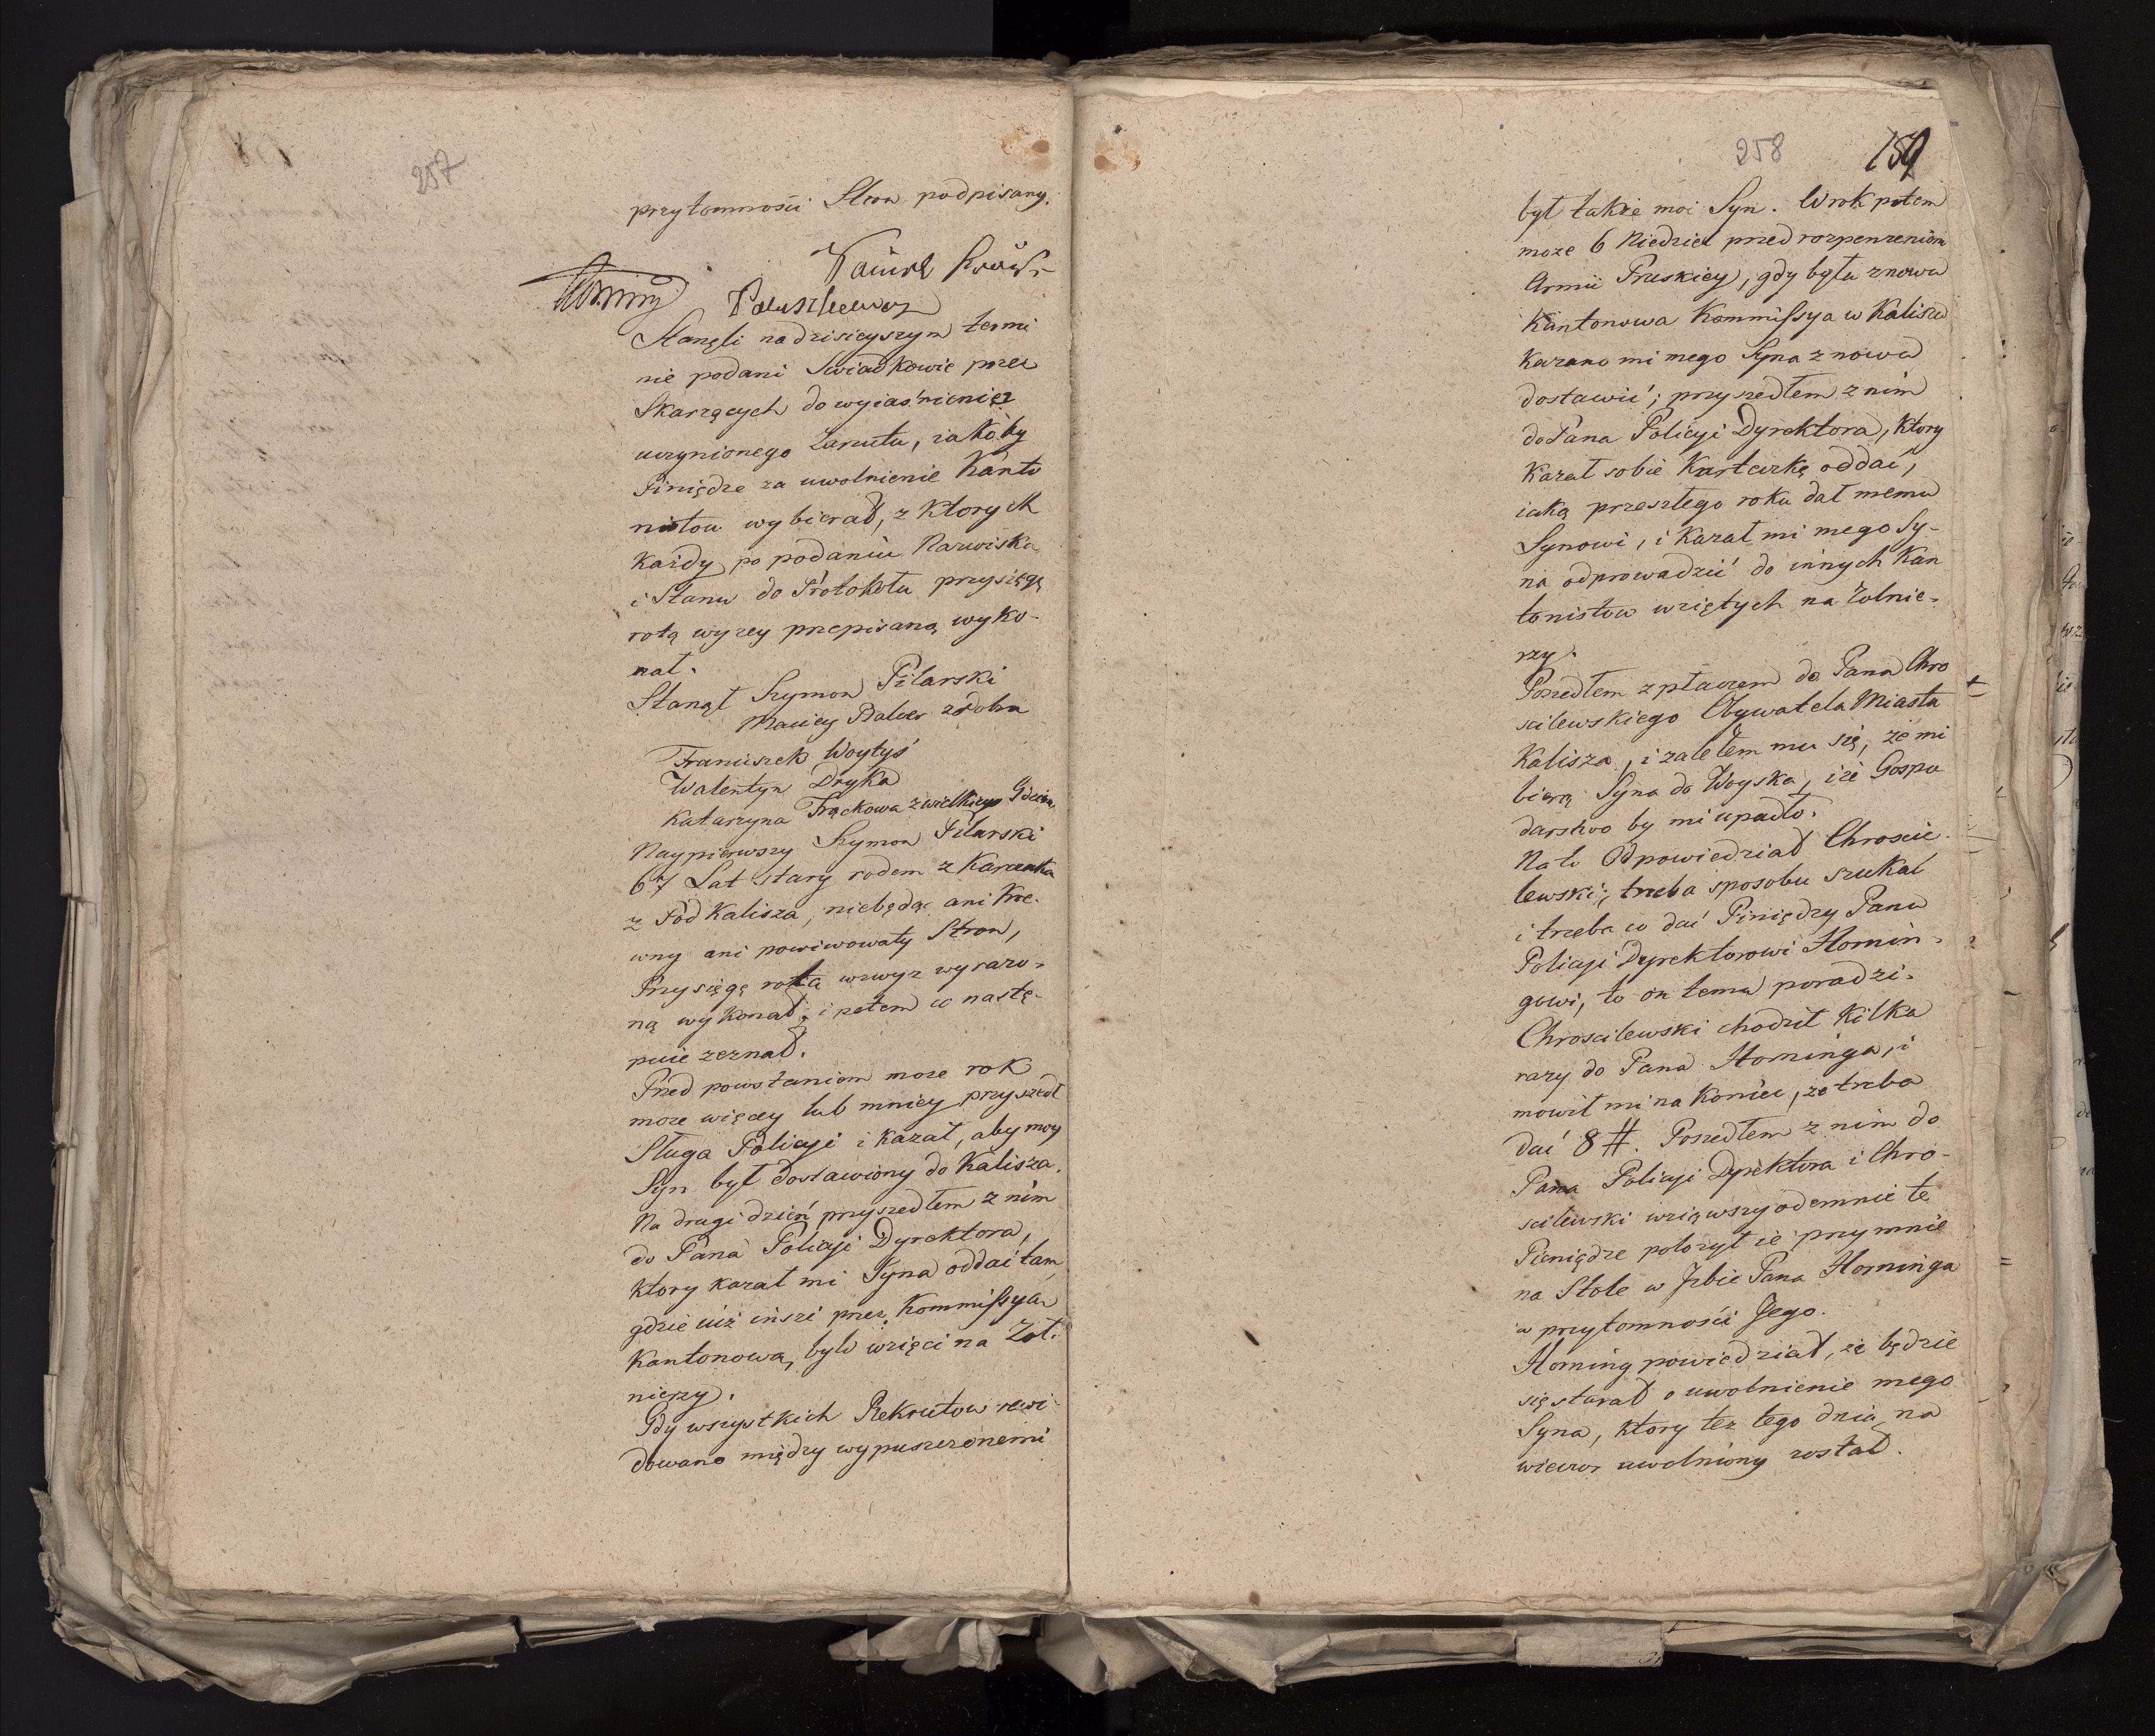 257
przytomności Stron podpisany.
Horning
Stanęli na dzisieyszym termi
nie podani Swiadkowie przez
Skarzących do wyiaśnienia
uczynionego Zarzutu, iakoby
Piniędze za uwolnienie Kanto
nistow wybierał, z ktorych
każdy po podaniu Nazwiska
i Stanu do Protokołu przysięgę
rotą wyzey przepisaną wyko-
nał.
Stanął Szymon Pilarski
Maciey Balcer z Dobra
Franciszek Woytyś
Walentyn Dryka
Katarzyna Frąckowa z wielkiego
Naypierwszy Szymon Pilarski
67 Lat stary rodem z
z Pod Kalisza, niebędąc ani Kre-
wny ani powinowaty Stron,
Przysięgę rotą wzwyz wyrazo-
ną wykonał, i potem co nastę-
puie zeznał.
Przed powstaniem moze rok
moze więcey lub mniey przyszedł
Sługa Policyi i kazał, aby moy
Syn był dostawiony do Kalisza.
Na drugi dzień przyszedłem z nim
do Pana Policyi Dyrektora,
ktory kazał mi Syna oddać tam
gdzie iuż inszi przez Kommissyą
Kantonową byli wzięci na Zoł-
nierzy.
Gdy wszystkich Rekrutow rewi-
dowano między wypuszczonemi
258
159
był także moi Syn. W rok potem
moze 6 Niedziel przed rozpenzeniem
Armii Pruskiey, gdy była znowu
Kantonowa Kommissya w Kaliszu
Kazano mi mego Syna znowu
dostawić; przyszedłem z nim
do Pana Policyi Dyrektora, ktory
Kazał sobie Karteczkę oddać,
iaką przeszłego roku dał memu
Synowi, i Kazał mi mego Sy-
na odprowadzić do innych Kan
tonistow wziętych na Zołnie-
rzy.
Poszedłem z płaczem do Pana Chro
scilewskiego Obywatela Miasta
Kalisza, i zaliłem mu się, że mi
biorą Syna do Woyska, i że Gospo
darstwo by mi upadło.
Na to Odpowiedział Chroscie-
lewski; trzeba sposobu szukać
i trzeba co dać Piniędzy Panu
Policyi Dyrektorowi Hornin-
gowi, to on temu poradzi.
Chroscilewski chodził kilka
razy do Pana Horninga, i
mowił mi na koniec, że trzeba
dać 8 #. Poszedłem z nim do
Pana Policyi Dyrektora i Chro-
scilewski wziąwszy odemnie te
Pieniądze położył ie przy mnie
na Stole w Izbie Pana Horninga
w przytomności Jego.
Horning powiedział, że będzie
się starał o uwolnienie mego
Syna, ktory tez tego dnia na
wieczor uwolniony został.